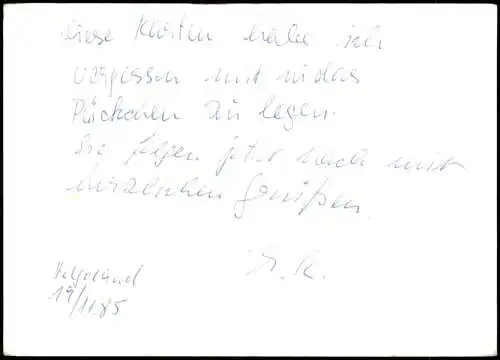 diese Karten habe ich
vergessen mit in das
Päckchen zu legen.
Sie folgen jetzt nach mit
herzlichen Grüßen.
H. K.
Helgoland
19/11.85